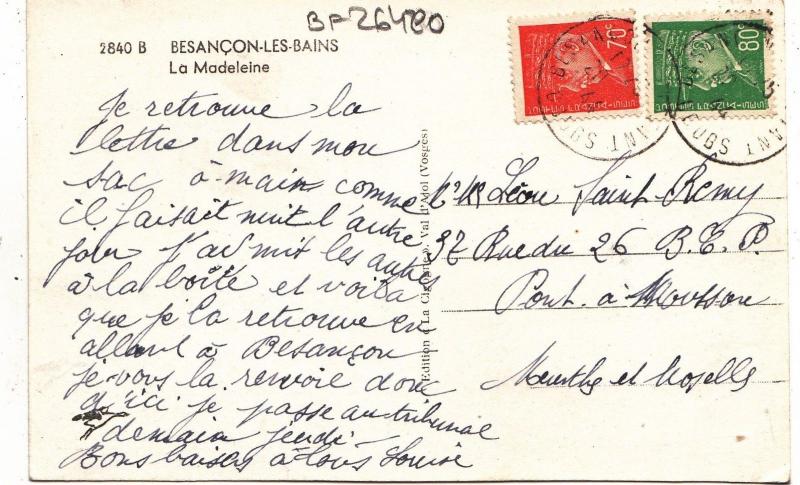 BF 26480
2840 B BESANÇON-LES-BAINS
La Madeleine
70c
80c
Je retrouve la
lettre dans mon
sac à main comme
il faisait nuit l'autre
jour j'ai mis les autres
à la boîte et voilà
que je la retrouve en
allant à Besançon
je vous la renvoie donc
d'ici je passe au tribunal
demain jeudi
Bons baisers à tous Louise
Edition « La Cigogne ». Val d'Ajol (Vosges)
Léon Saint Remy
37 Rue du 26 B.C.P.
Pont à Mousson
Meurthe et Moselle